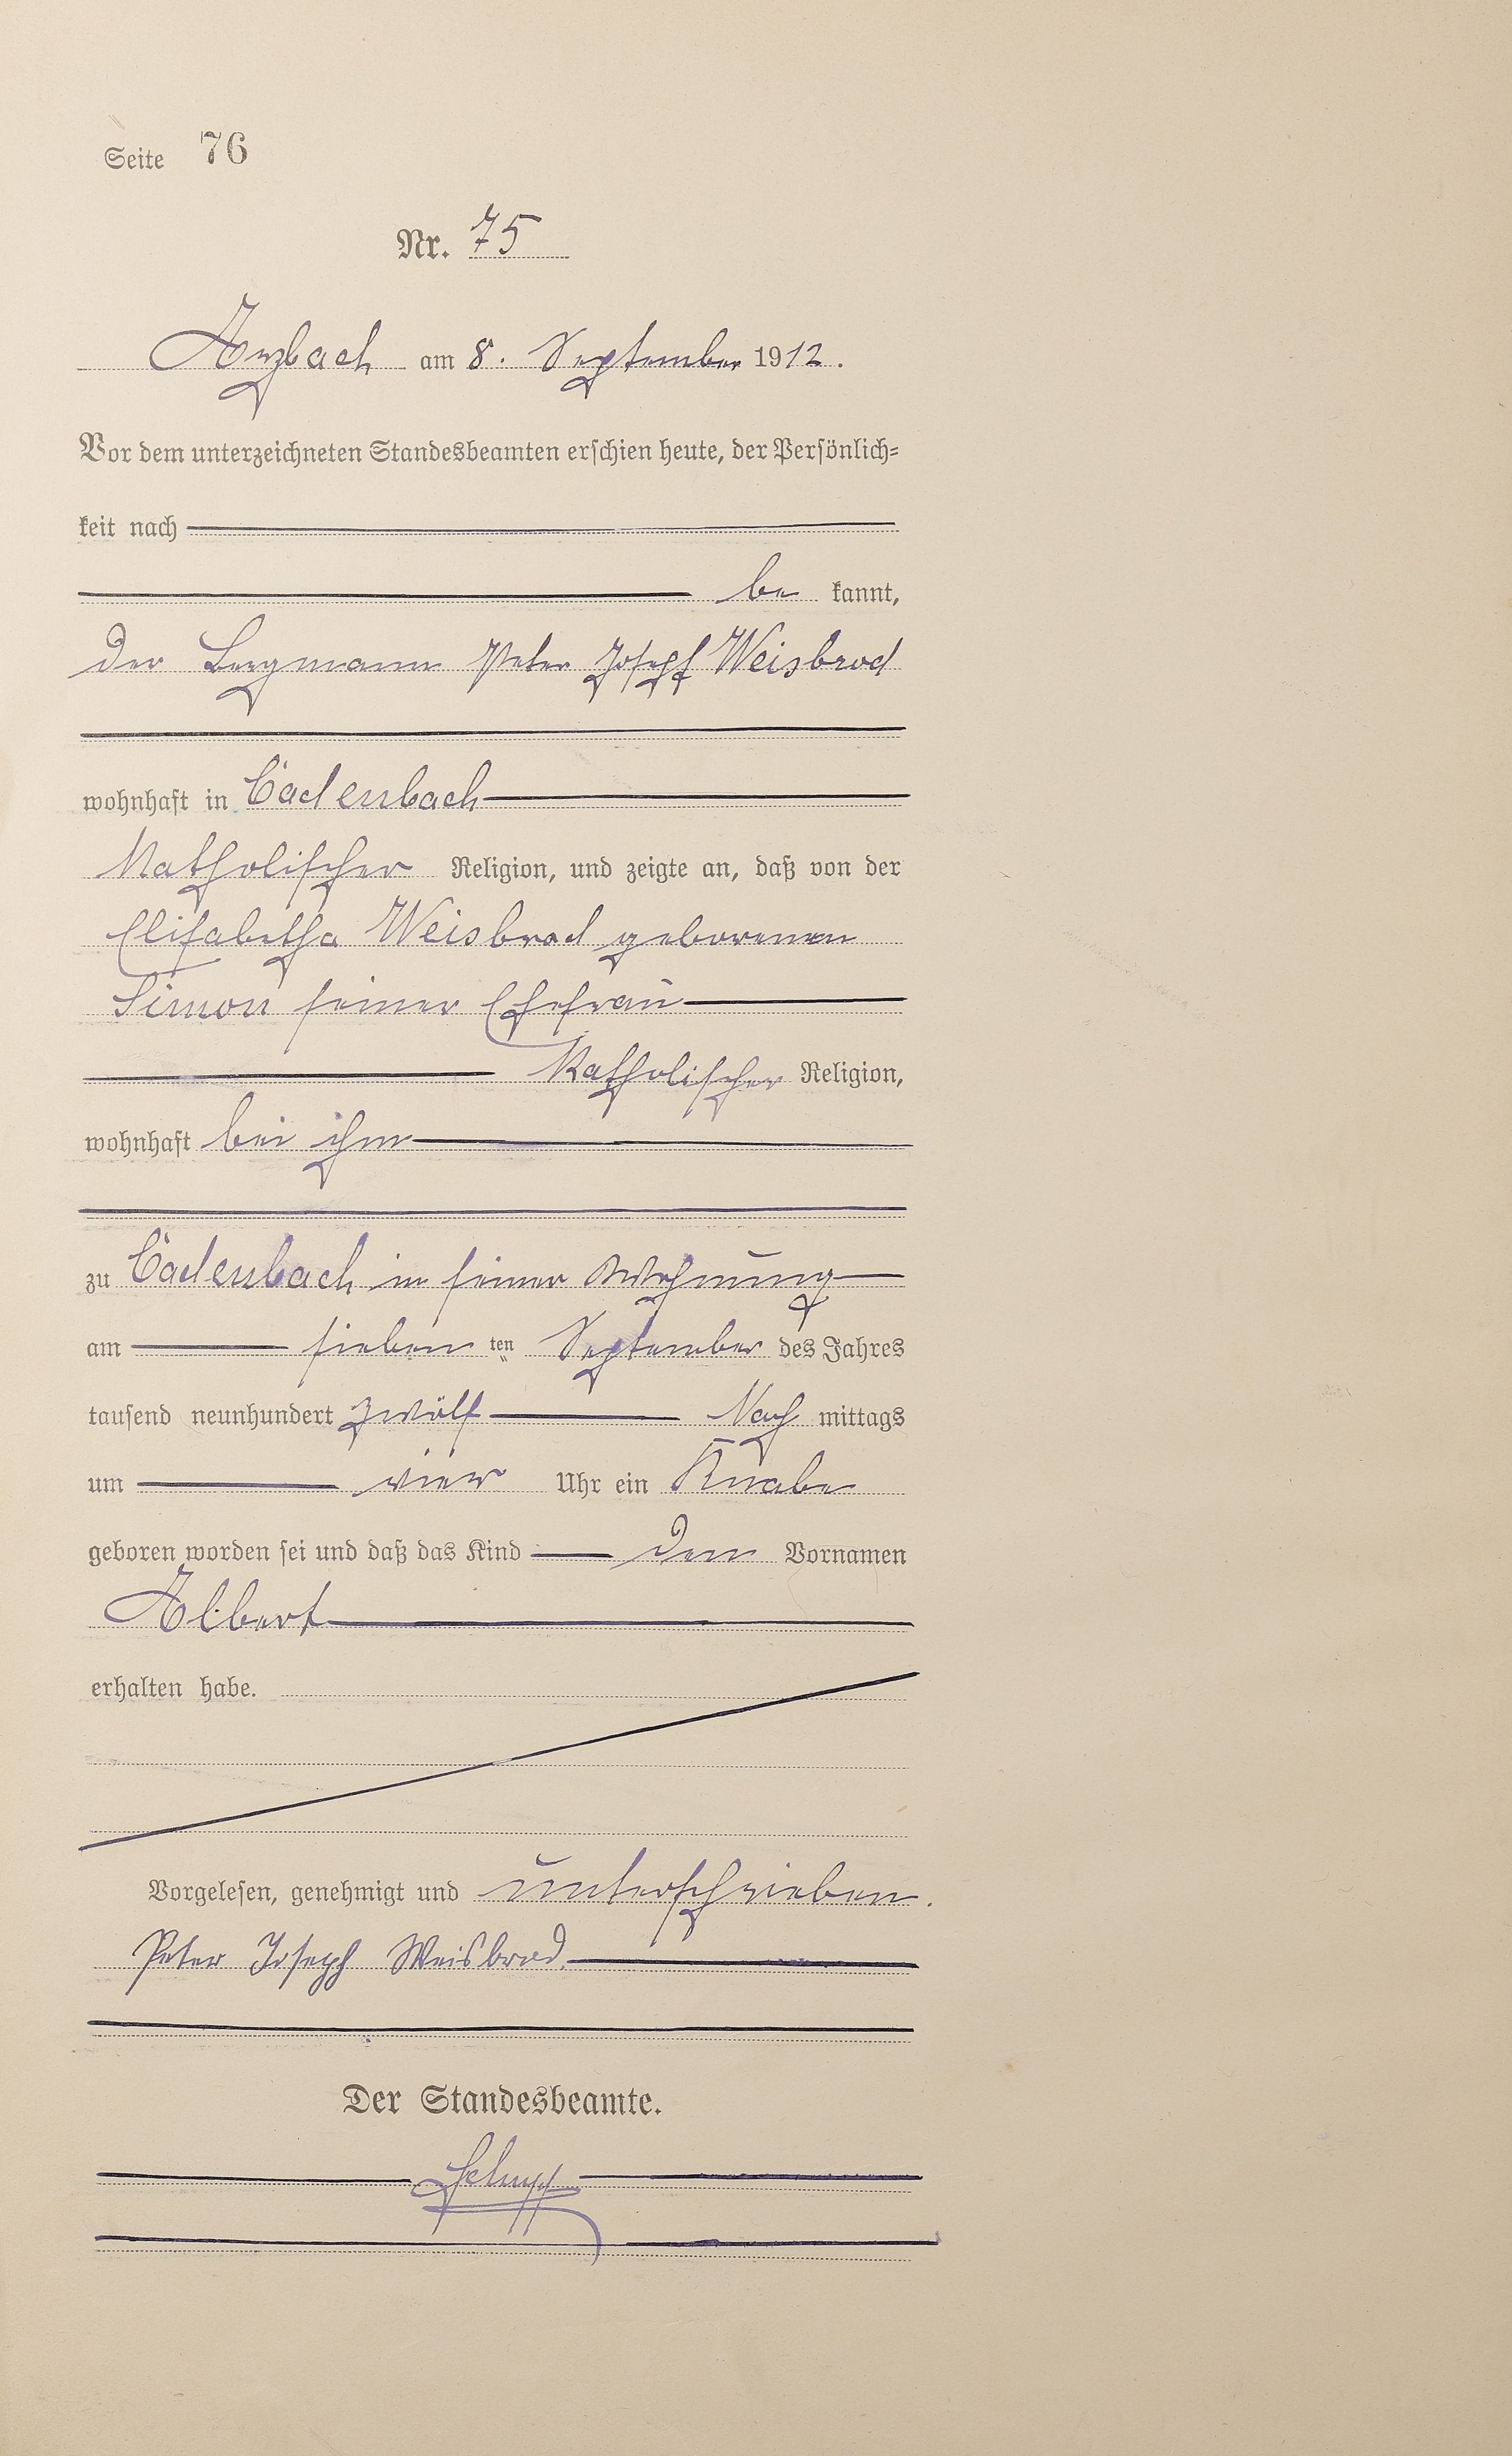 Seite 76
Nr. 75
Arzbach am 8. September 1912.
Vor dem unterzeichneten Standesbeamten erschien heute, der Persönlich=
keit nach
be kannt,
der Bergmann Peter Josepf Weisbrod
wohnhaft in Cadenbach
Katholischer Religion, und zeigte an, daß von der
Elisabetha Weisbrod geborenen
Simon seiner Ehefrau
Katholischer Religion,
wohnhaft bei ihm
zu Cadenbach in seiner Wohnung
am sieben ten September des Jahres
tausend neunhundert zwölf Nach mittags
um vier Uhr ein Knabe
geboren worden sei und daß das Kind den Vornamen
Albert
erhalten habe.
Vorgelesen, genehmigt und unterschrieben.
Peter Joseph Weisbrod.
Der Standesbeamte.